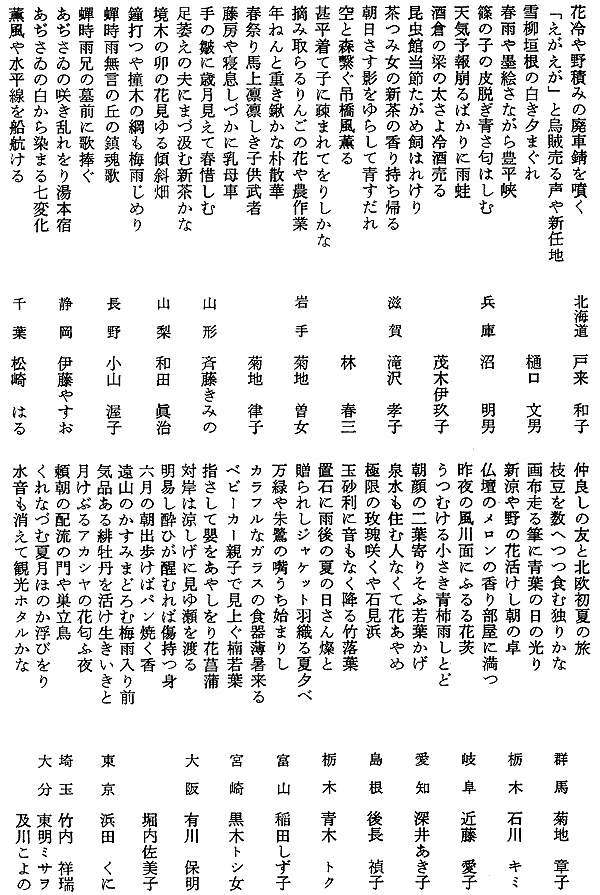 花冷や野積みの廃車錆を噴く
「えがえが」と烏賊売る声や新任地
雪柳垣根の白き夕まぐれ
春雨や墨絵さながら豊平峡
篠の子の皮脱ぎ青さ匂はしむ
天気予報崩るばかりに雨蛙
酒倉の梁の太さよ冷酒売る
昆虫館当節たがめ飼はれけり
茶つみ女の新茶の香り持ち帰る
朝日さす影をゆらして青すだれ
空と森繋ぐ吊橋風薫る
甚平着て子に疎まれてをりしかな
摘み取らるりんごの花や農作業
年ねんと重き鍬かな朴散華
春祭り馬上凛凛しき子供武者
藤房や寝息しづかに乳母車
手の皺に歳月見えて春惜しむ
足萎えの夫にまづ汲む新茶かな
境木の卯の花見ゆる傾斜畑
鐘打つや撞木の綱も梅雨じめり
蟬時雨無言の丘の鎮魂歌
蟬時雨兄の墓前に歌捧ぐ
あぢさゐの咲き乱れをり湯本宿
あぢさゐの白から染まる七変化
薫風や水平線を船航ける
北海道 戸来 和子
樋口 文男
兵庫 沼 明男
茂木伊玖子
滋賀 滝沢 孝子
林 春三
岩手 菊地 曽女
菊地 律子
山形 斉藤きみの
山梨 和田 眞治
長野 小山 渥子
静岡 伊藤やすお
千葉 松崎 はる
仲良しの友と北欧初夏の旅
枝豆を数へつつ食む独りかな
画布走る筆に青葉の日の光り
新涼や野の花活けし朝の卓
仏壇のメロンの香り部屋に満つ
昨夜の風川面にふるる花茨
うつむける小さき青柿雨しとど
朝顔の二葉寄りそふ若葉かげ
泉水も住む人なくて花あやめ
極限の玫瑰咲くや石見浜
玉砂利に音もなく降る竹落葉
置石に雨後の夏の日さん燦と
贈られしジャケット羽織る夏夕べ
万緑や朱鷺の嘴うち始まりし
カラフルなガラスの食器薄暑来る
ベビーカー親子で見上ぐ楠若葉
指さして嬰をあやしをり花菖蒲
対岸は涼しげに見ゆ瀬を渡る
明易し酔ひが醒むれば傷持つ身
六月の朝出歩けばパン焼く香
遠山のかすみまどろむ梅雨入り前
気品ある緋牡丹を活け生きいきと
月けぶるアカシヤの花匂ふ夜
頼朝の配流の門や巣立鳥
くれなづむ夏月ほのか浮びをり
水音も消えて観光ホタルかな
群馬 菊地 章子
栃木 石川 キミ
岐阜 近藤 愛子
愛知 深井あき子
島根 後長 禎子
栃木 青木 トク
富山 稲田しず子
宮崎 黒木トシ女
大阪 有川 保明
堀内佐美子
東京 浜田 くに
埼玉 竹内 祥瑞
大分 東明ミサヲ
及川こよの